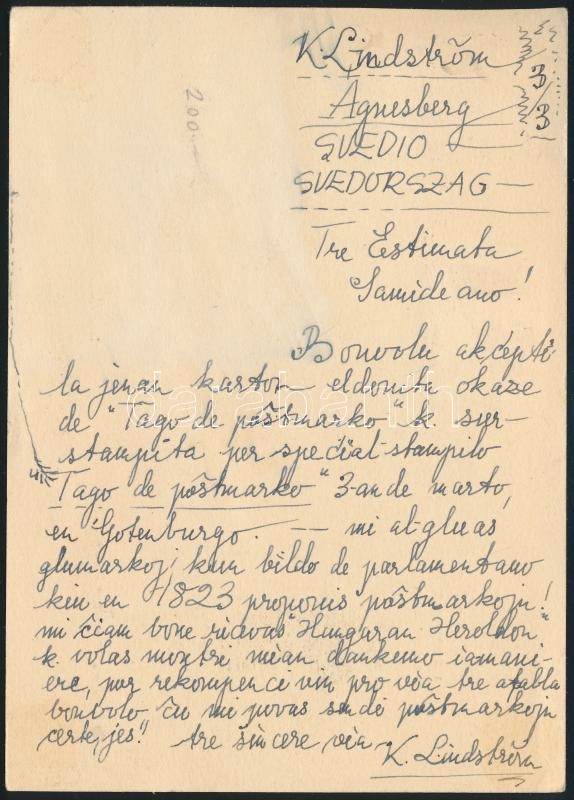 K. Lindström
3/3
Agnesberg
SVEDIO
SVEDORSZAG
200.
Tre Estimata
Samideano!
Bonvolu akĉepti
la jenan karton eldonita okaze
de "Tago de poŝtmarko" k. sur-
stampita per special-stampilo
"Tago de poŝtmarko" 3-an de marto,
en Gotenburgo. — mi al-gluas
glumarkoj kun bildo de parlamentano
kiu en 1823 proponis poŝtmarkojn!
mi ĉiam bone ricevas "Hungaran Heroldon"
k. volas montri mian dankemo iamani-
ere, por rekompenci vin pro via tre afabla
bonvolo ĉu mi povas sendi poŝtmarkojn
certe, jes! tre sincere via
K. Lindström
darabanth